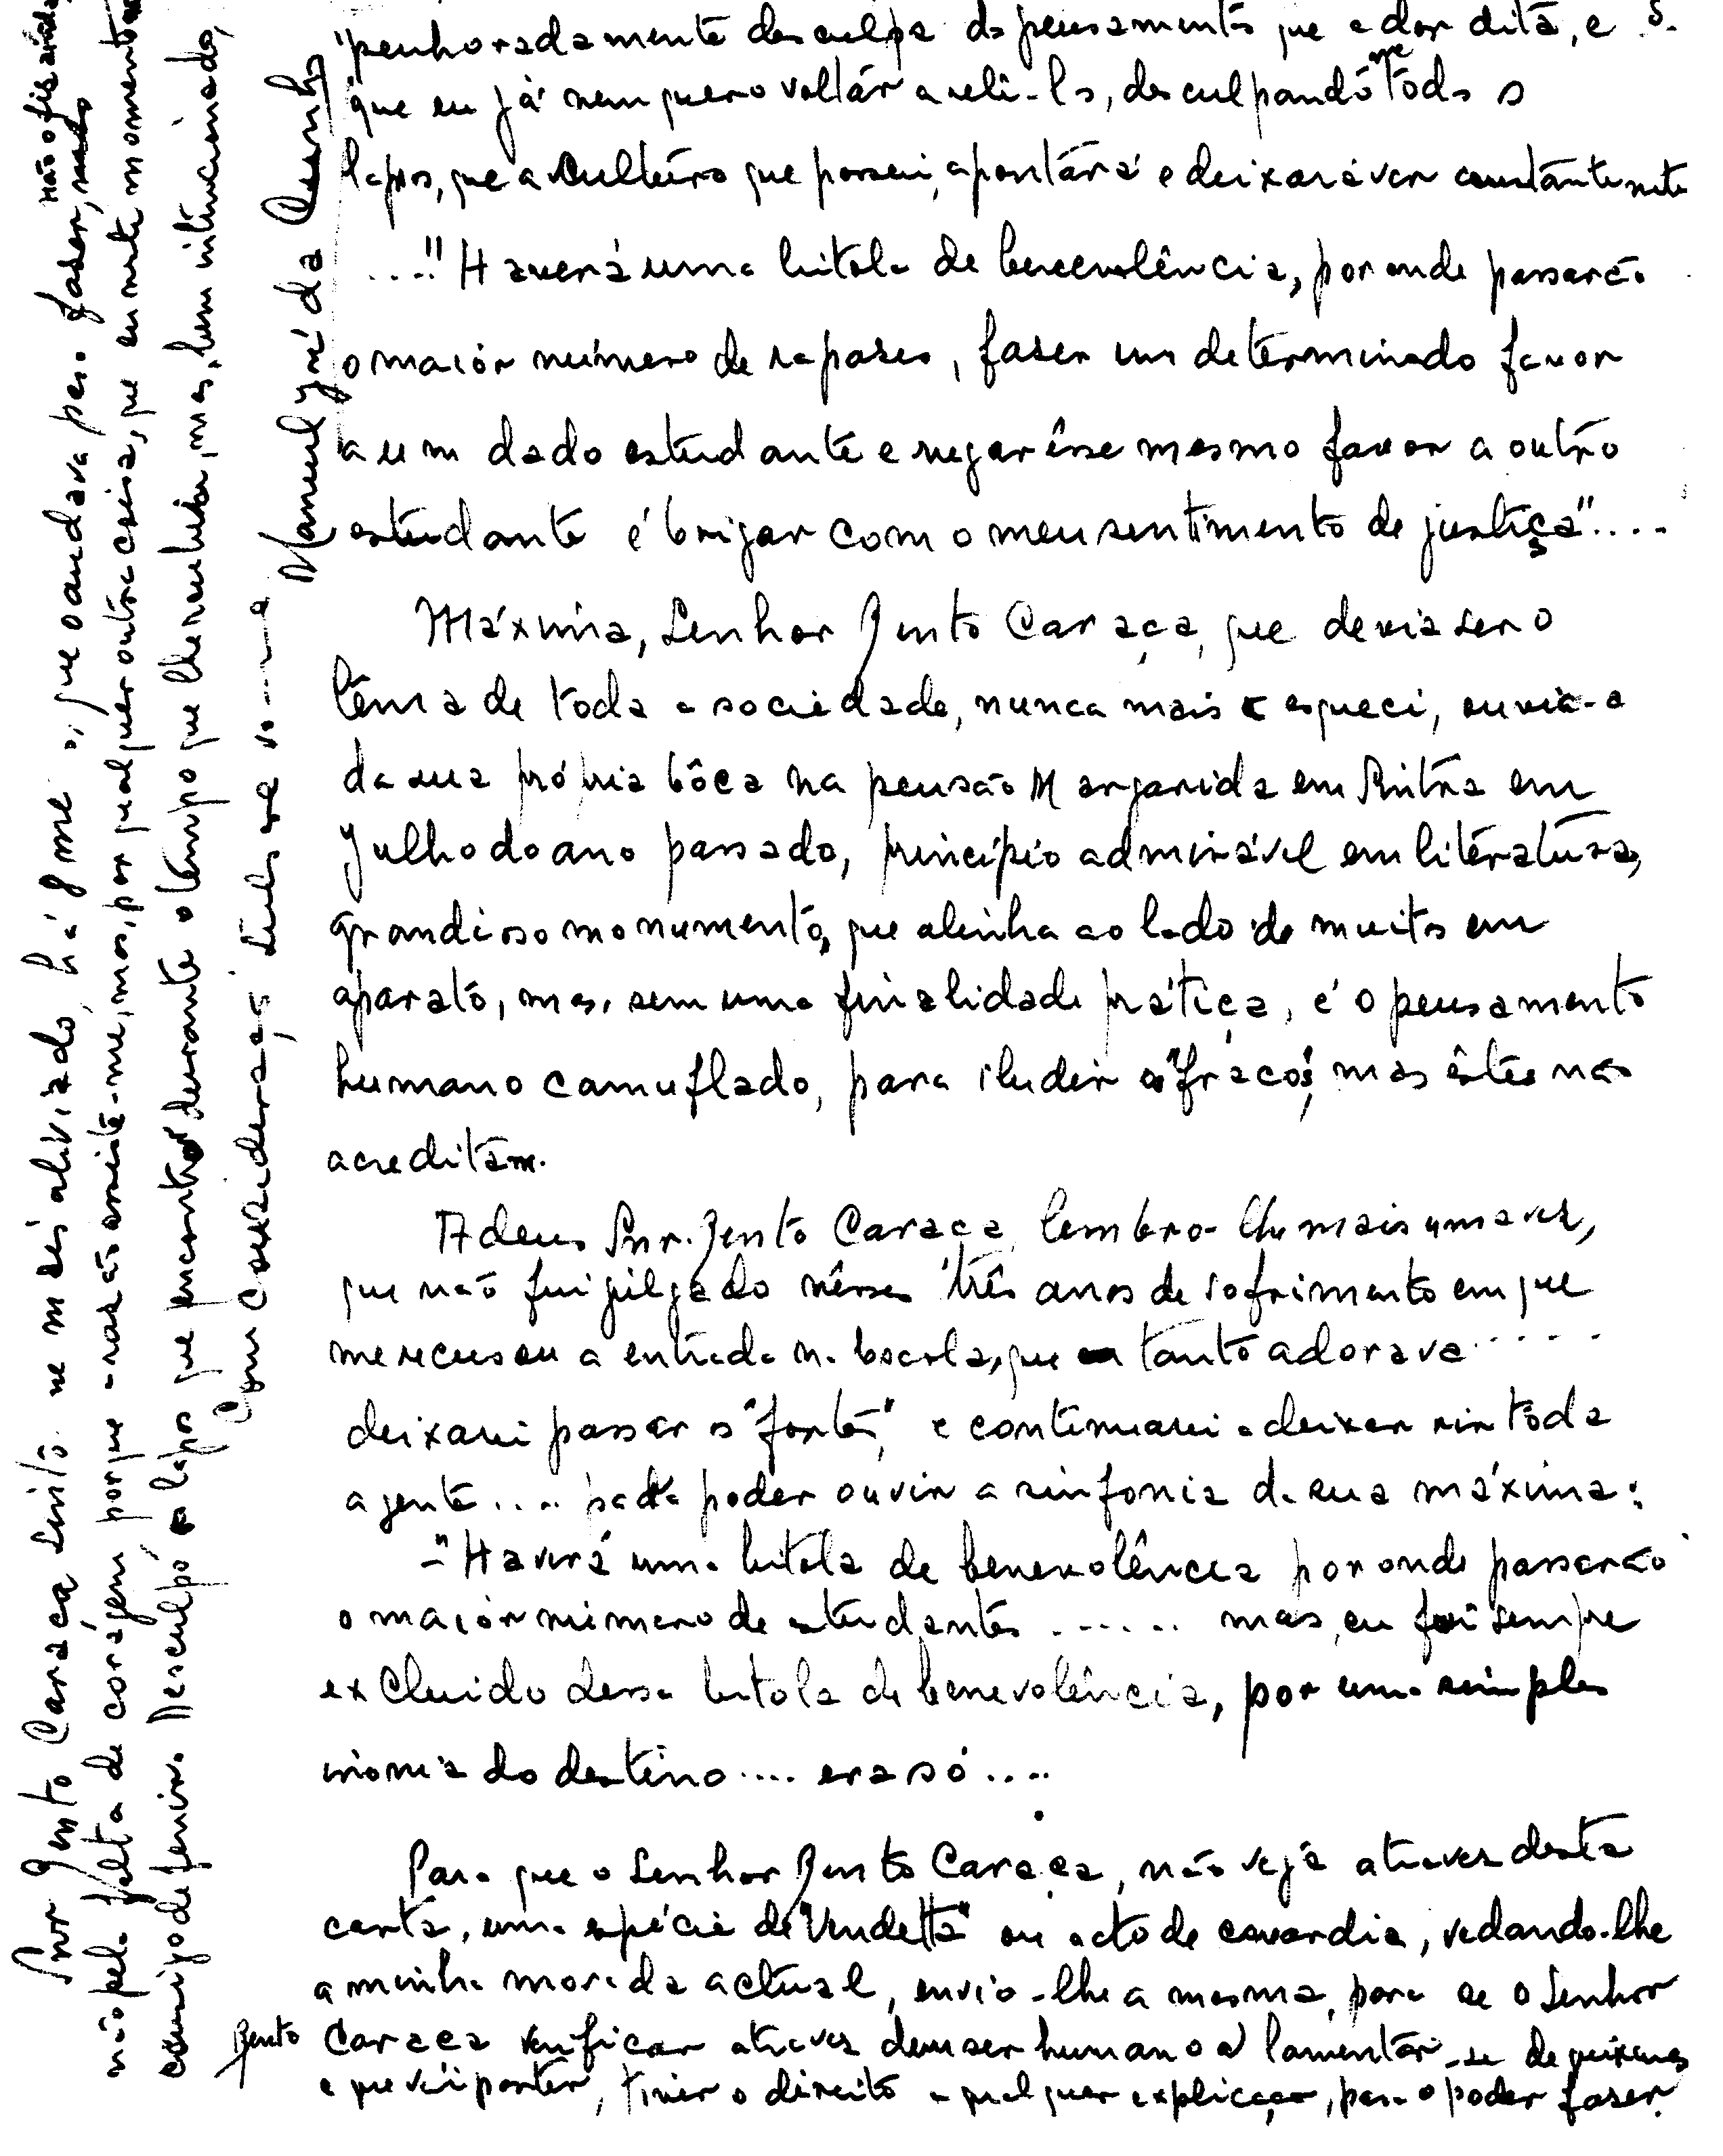 penhoradamente desculpa do pensamento que a dor dita, e
que eu já nem quero voltar a reli-lo, desculpando-me todos o
lapsos, que a culture que possui, apontará e deixará ver constantemente
...." Haverá uma bitola de benevolência, por onde passarão
o maiór número de rapases, faser um determinado favor
a um dado estudante e negar êsse mesmo favor a outro
estudante é brigar com o meu sentimento de justiça"....
Máxima, Senhor Bento Caraça, que devia ser o
têma de toda a sociedade, nunca mais a esqueci, ouvia-a
da sua própria bôca na pensão Margarida em Sintra em
Julho do ano passado, princípio admirável em literatura,
grandioso monumento, que alinha ao lado de muitos em
aparato, mas, sem uma finalidade prática, é o pensamento
humano camuflado, para iludir os "fracos", mas êstes não
acreditam.
Adeus Snr. Bento Caraça, lembro-lhe mais uma vez,
que não fui julgado nêsses três anos de sofrimento em que
me recusou a entrada na Escola, que tanto adorava.....
deixarei passar os "fortes", e continuarei a deixar rir tôda
a gente.... para poder ouvir a sinfonia da sua máxima:
-"Haverá uma bitola de benevolência por onde passarão
o maiór número de estudantes ...... mas, eu fui sempre
excluido dessa bitola de benevolência, por uma simples
ironia do destino.... era só....
Para que o Senhor Bento Caraça, não vejá atraves desta
carta, uma espécie de "Vendetta" ou acto de covardia, vedando-lhe
a minha morada actual, envio-lhe a mesma, para se o Senhor
Bento Caraça verificar atraves dum ser humano a lamentar-se de queixas
e que vái partir, tiver o direito a qualquer explicação, para o poder faser.
Snr Bento Caraça sinto-me mais aliviado, há 8 me que o andava para faser, não o fis ainda,
não pela falta de corágem porque a rasão assiste-me, mas, por qualquer outra coisa, que em neste momento
comigo defenir. Desculpe o lapso que encontrar durante o têmpo que lhe roubei, mas, bem intencionado,
Com consideração
Manuel José da Cunha